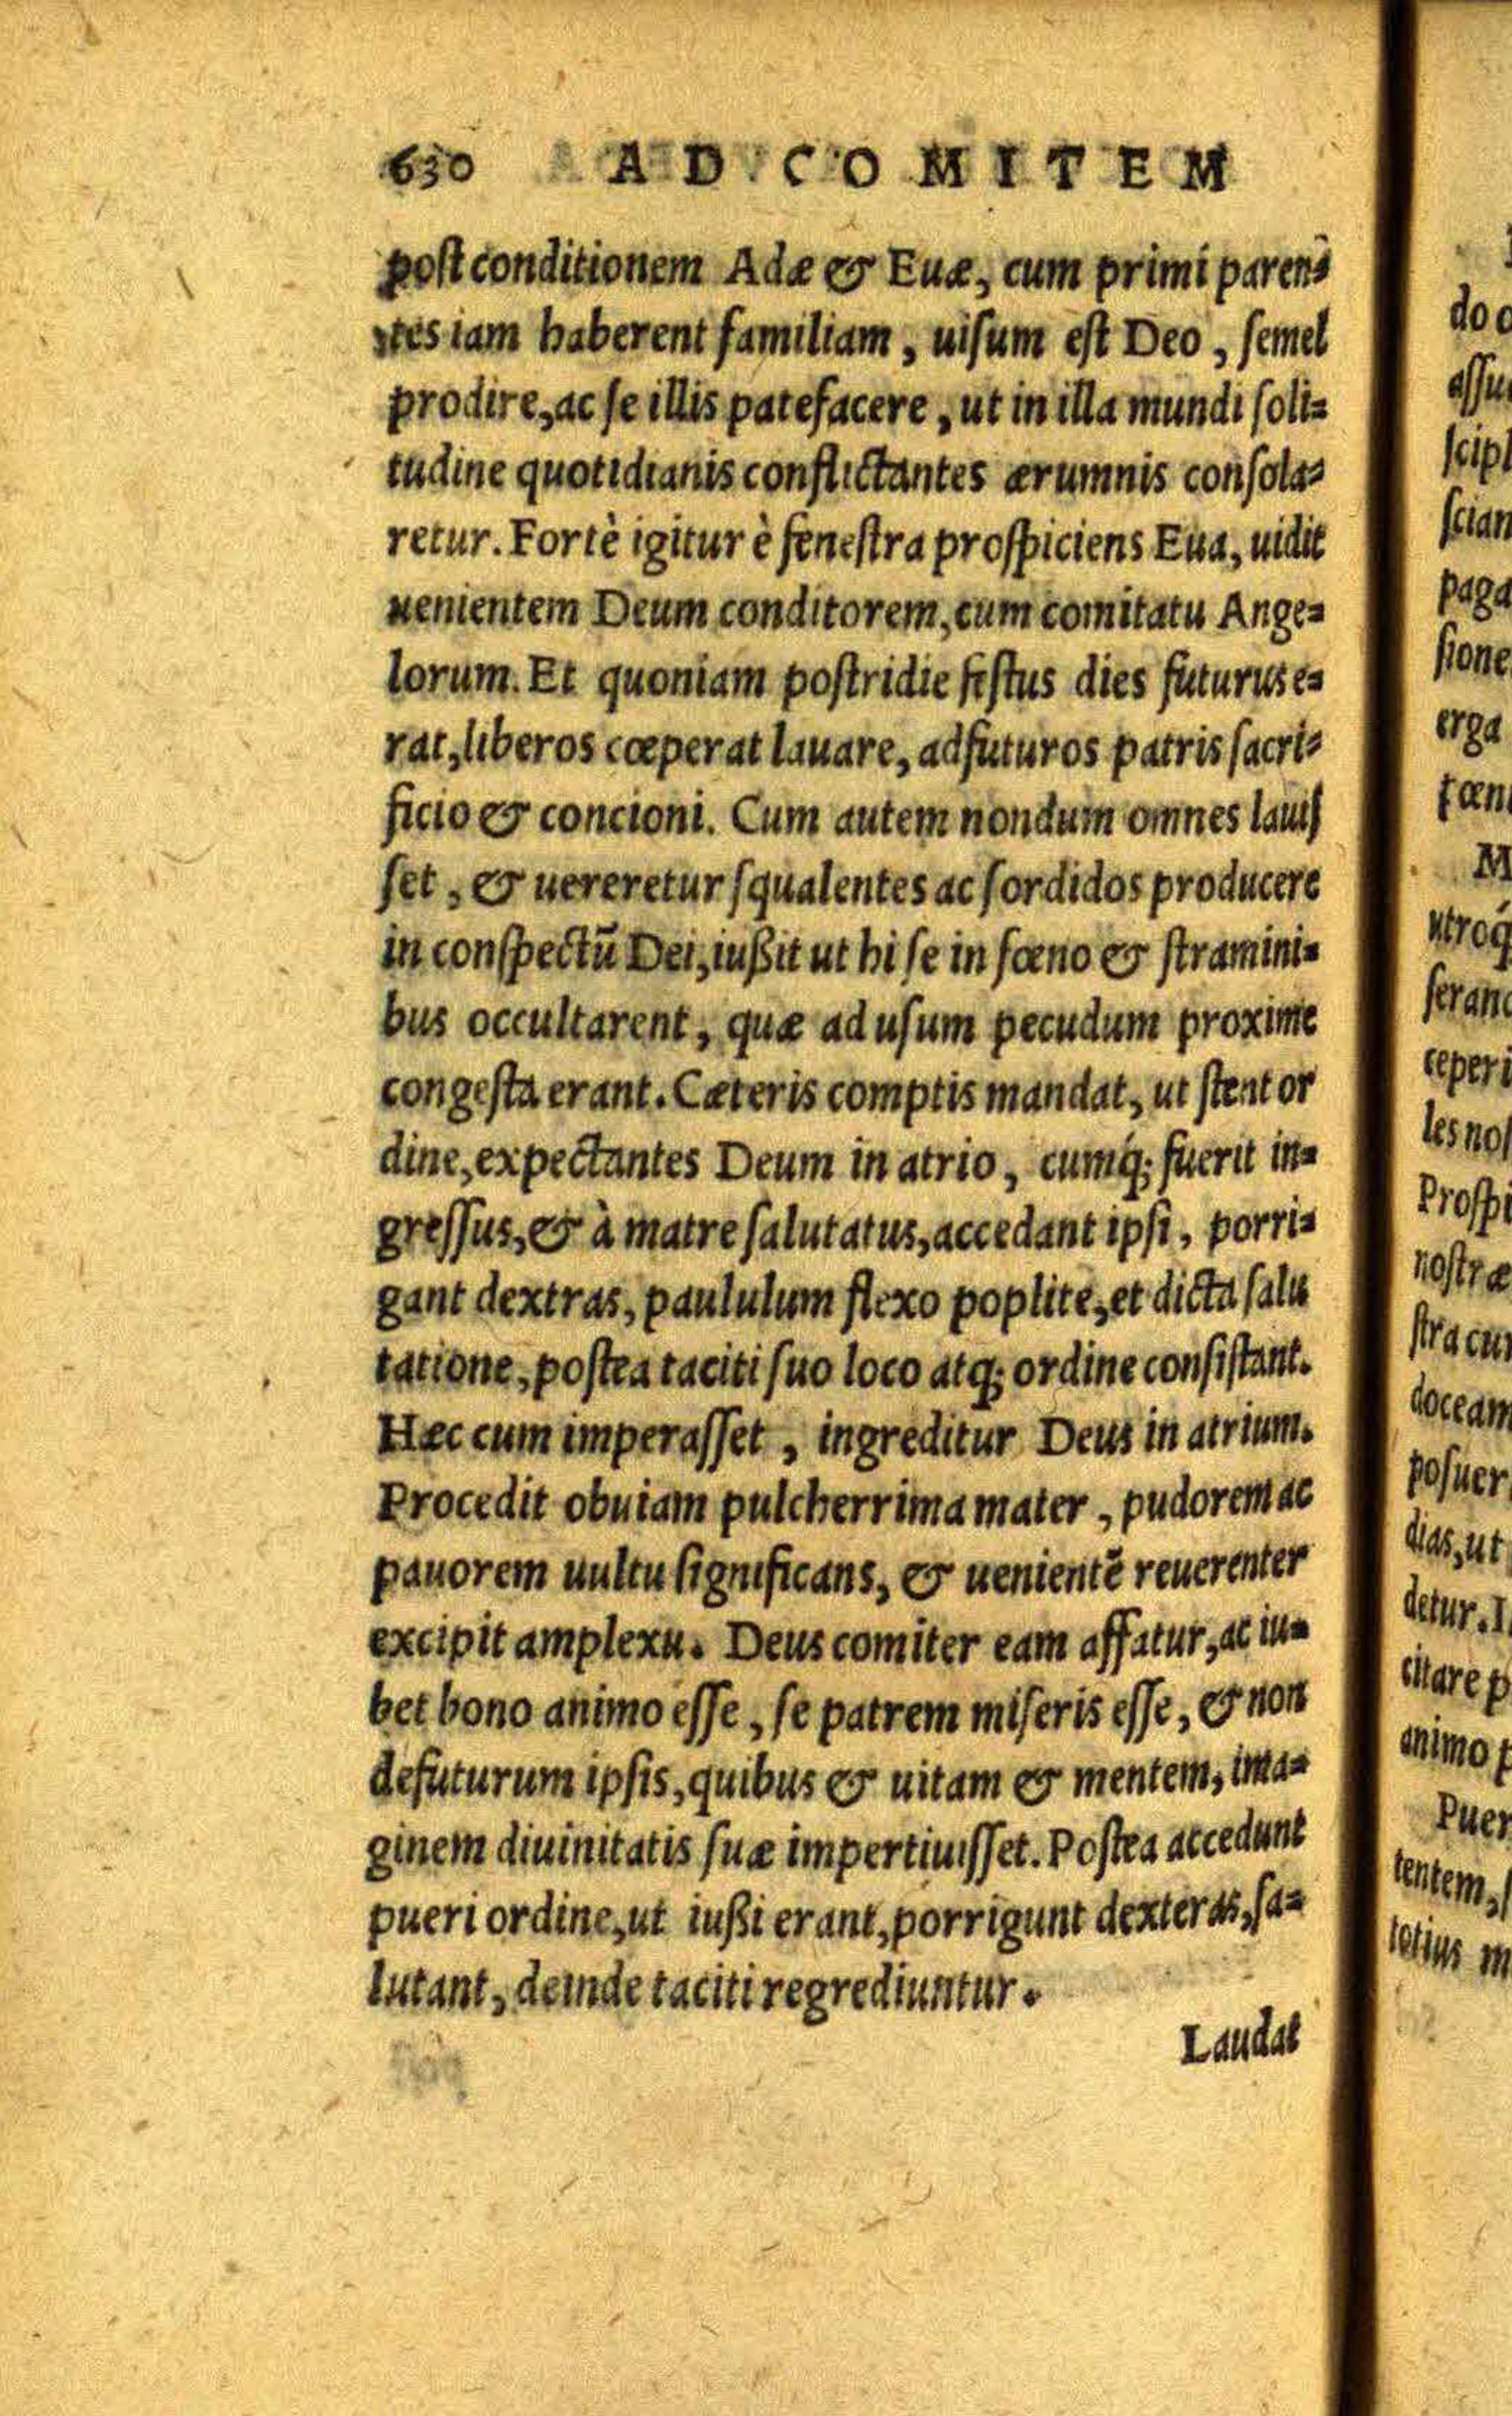 630 AD COMITEM
post conditionem Adæ & Euæ, cum primi paren⸗
tes iam haberent familiam, uiſum eſt Deo, ſemel
prodire, ac ſe illis patefacere, ut in illa mundi ſoli⸗
tudine quotidianis conflictantes ærumnis conſola⸗
retur. Fortè igitur è feneſtra proſpiciens Eua, uidit
uenientem Deum conditorem, cum comitatu Ange⸗
lorum. Et quoniam poſtridie feſtus dies futurus e⸗
rat, liberos cœperat lauare, adfuturos patris ſacri⸗
ficio & concioni. Cum autem nondum omnes lauiſ
ſet, & uereretur ſqualentes ac ſordidos producere
in conſpectū Dei, iußit ut hi ſe in fœno & ſtramini⸗
bus occultarent, quæ ad uſum pecudum proxime
congeſta erant. Cæteris comptis mandat, ut ſtent or
dine, expectantes Deum in atrio, cumq́; fuerit in⸗
greſſus, & à matre ſalutatus, accedant ipſi, porri⸗
gant dextras, paululum flexo poplite, et dicta ſalu
tatione, poſtea taciti ſuo loco atq; ordine conſiſtant.
Hæc cum imperaſſet, ingreditur Deus in atrium.
Procedit obuiam pulcherrima mater, pudorem ac
pauorem uultu ſignificans, & uenientē reuerenter
excipit amplexu. Deus comiter eam affatur, ac iu⸗
bet bono animo eſſe, ſe patrem miſeris eſſe, & non
defuturum ipſis, quibus & uitam & mentem, ima⸗
ginem diuinitatis ſuæ impertiuiſſet. Poſtea accedunt
pueri ordine, ut iußi erant, porrigunt dexteras, ſa⸗
lutant, deinde taciti regrediuntur.
Laudat
do
aſſu
ſcipl
ſcian
paga
ſione
erga
M
utroq́
ſeran
ceperi
les noſ
Proſpi
noſtræ
ſtra cu
doceam
poſuer
dias, ut
detur. I
citare p
animo p
Puer
tentem, ſ
totius m